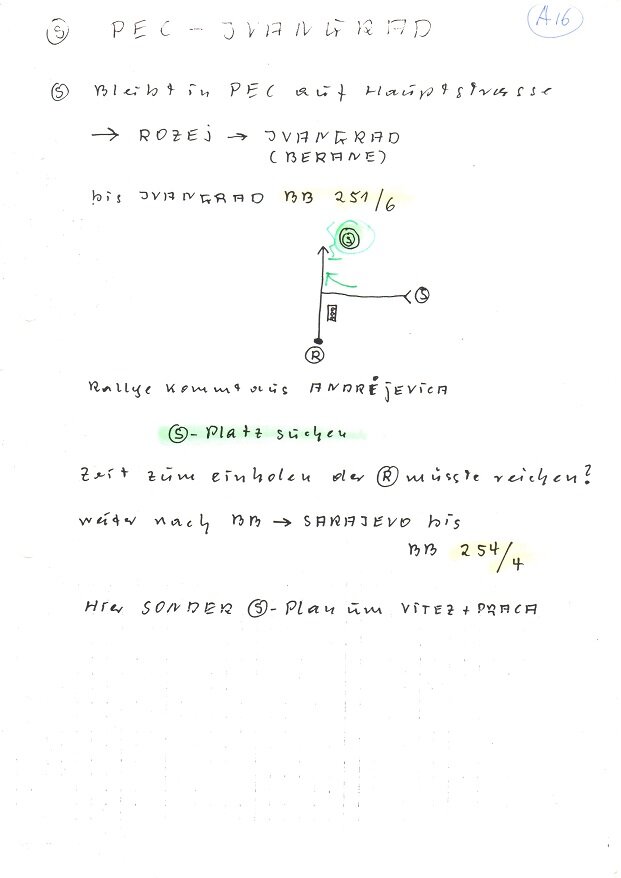 Ⓢ PEC - JVANGRAD
A16
Ⓢ Bleibt in PEC auf Hauptstrasse
→ ROZEJ → JVANGRAD
(BERANE)
bis JVANGRAD BB 251/6
Ⓢ
Ⓢ
Ⓡ
Rallye kommt aus ANDRÉJEVICA
Ⓢ-Platz suchen
Zeit zum einholen der Ⓡ müsste reichen?
weiter nach BB → SARAJEVO bis
BB 254/4
Hier SONDER Ⓢ-Plan um VITEZ + PRACA